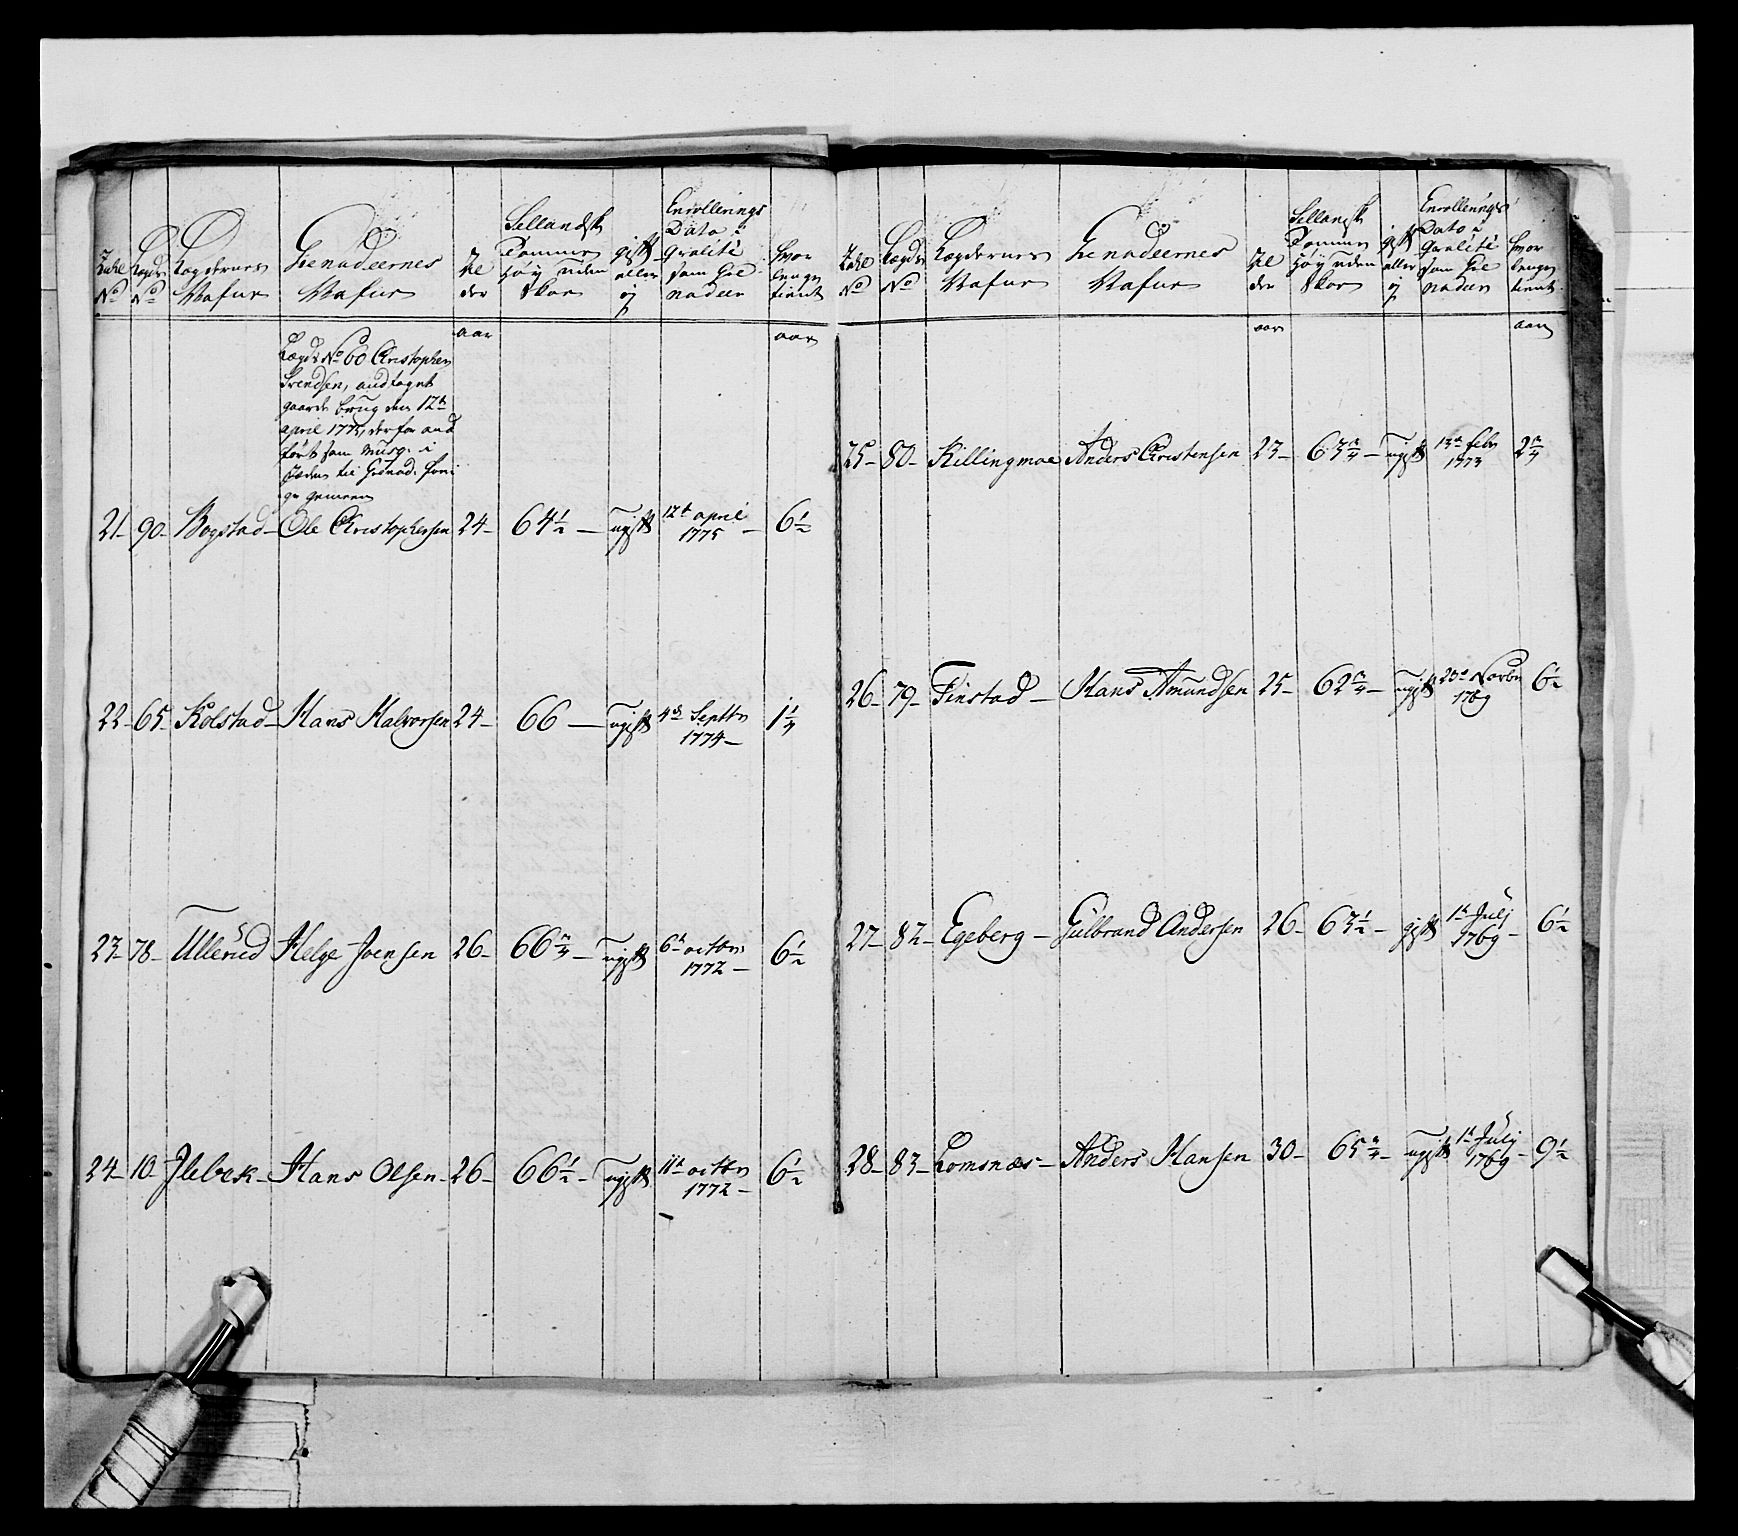 Tahl No
Lægds No
Lægdernes Nafne
Grenadeernes Nafne
Alder
Sellandsk Tommer høy uden Skoe
gift eller ey
Enrollerings Dato i Qvalité som Grenadeer
hvor lenge tient
aar
aar
Lægds No 60 Christopher
Svendsen, andtaget
gaards brug den 12te
april 1775, derfor and
ført som Musq. i
steden til Grenad:
gemeen
21 - 90 - Bogstad - Ole Christophersen 24 - 64½ - ugift 12te april 1775 - 6½
22 - 65 - Kolstad - Hans Halvorsen 24 - 66 - ugift 4de Septbr 1774 - 1¼
23 - 78 - Ullerud Helge Joensen 26 - 66¾ - ugift 6te octbr 1772 - 6½
24 - 10 - Ilebek - Hans Olsen - 26 - 66½ - ugift 11te octbr 1772 - 6½
Tahl No
Lægds No
Lægdernes Nafne
Grenadeernes Nafne
Alder
Sellandsk Tommer høy uden Skoe
gift eller ey
Enrollerings Dato i Qvalité som Grenadeer
hvor lenge tient
aar
aar
25 - 80 - Killingmoe Anders Christensen 23 - 63¾ - ugift 13de febr 1773 2¾
26 - 79 - Finstad - Hans Amundsen 25 - 62¾ - ugift 23de Novbr 1769 6½
27 - 82 - Egeberg - Gulbrand Andersen 26 - 63½ - gift 1te Julj 1769 - 6½
28 - 83 - Lomsnæs - Anders Hansen 30 - 65¾ - ugift 1te Julj 1769 - 9½